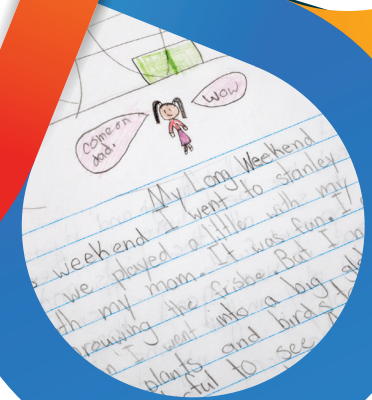 come on
dad.
WOW
My Long Weekend
weekend I went to stanley
we played a little with my
my mom. It was fun. I
the frisbe. But I
I went into a big
plants and birds
to see